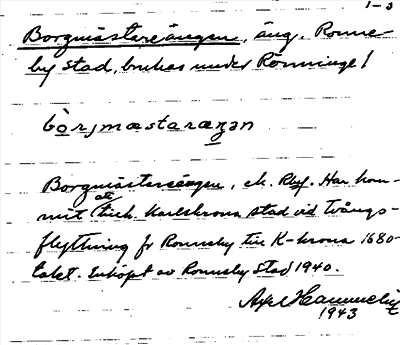 1-3
Borgmästareängen, äng. Ronne-
by stad, brukas under Rönninge 1
bòrjmæstaræŋan
Borgmästareängen, ek. Rbf. Har kom-
mit att tillh. Karlskrona stad vid tvångs-
flyttning fr Ronneby till K-krona 1680-
talet. Inköpt av Ronneby stad 1940.
Axel
1943